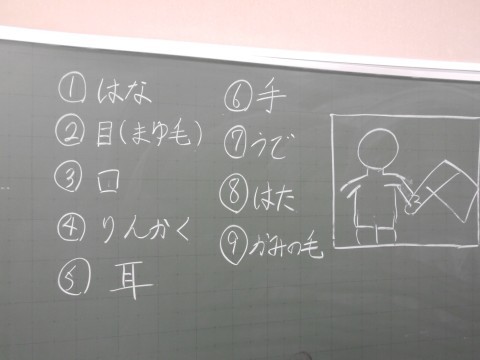 ① はな
② 目(まゆ毛)
③ 口
④ りんかく
⑤ 耳
⑥ 手
⑦ うで
⑧ はた
⑨ かみの毛